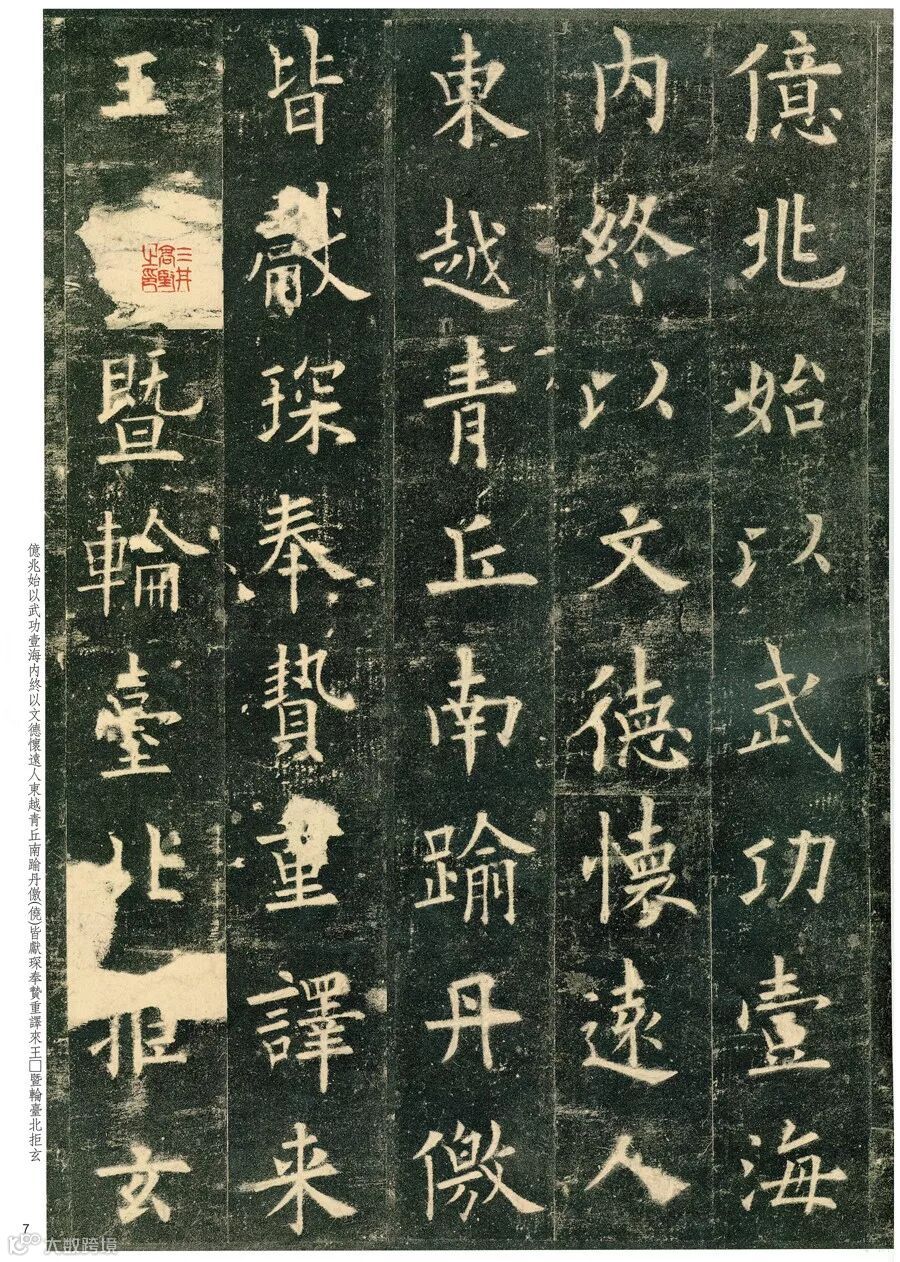 億兆始以武功壹海
内終以文德懷遠人
東越青丘南踰丹儌
皆獻琛奉贄重譯来
王
暨輪臺北拒玄
三井高堅之印
億兆始以武功壹海内終以文德懷遠人東越青丘南踰丹儌(僥)皆獻琛奉贄重譯來王□暨輪臺北拒玄
7
大数跨境